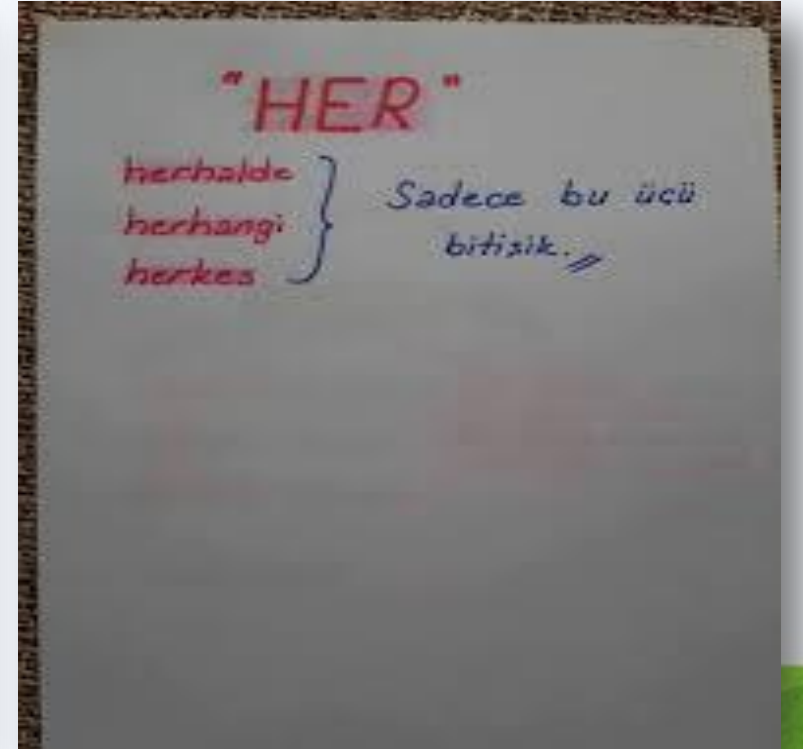 "HER"
herhalde
herhangi
herkes
Sadece bu üçü
bitişik.